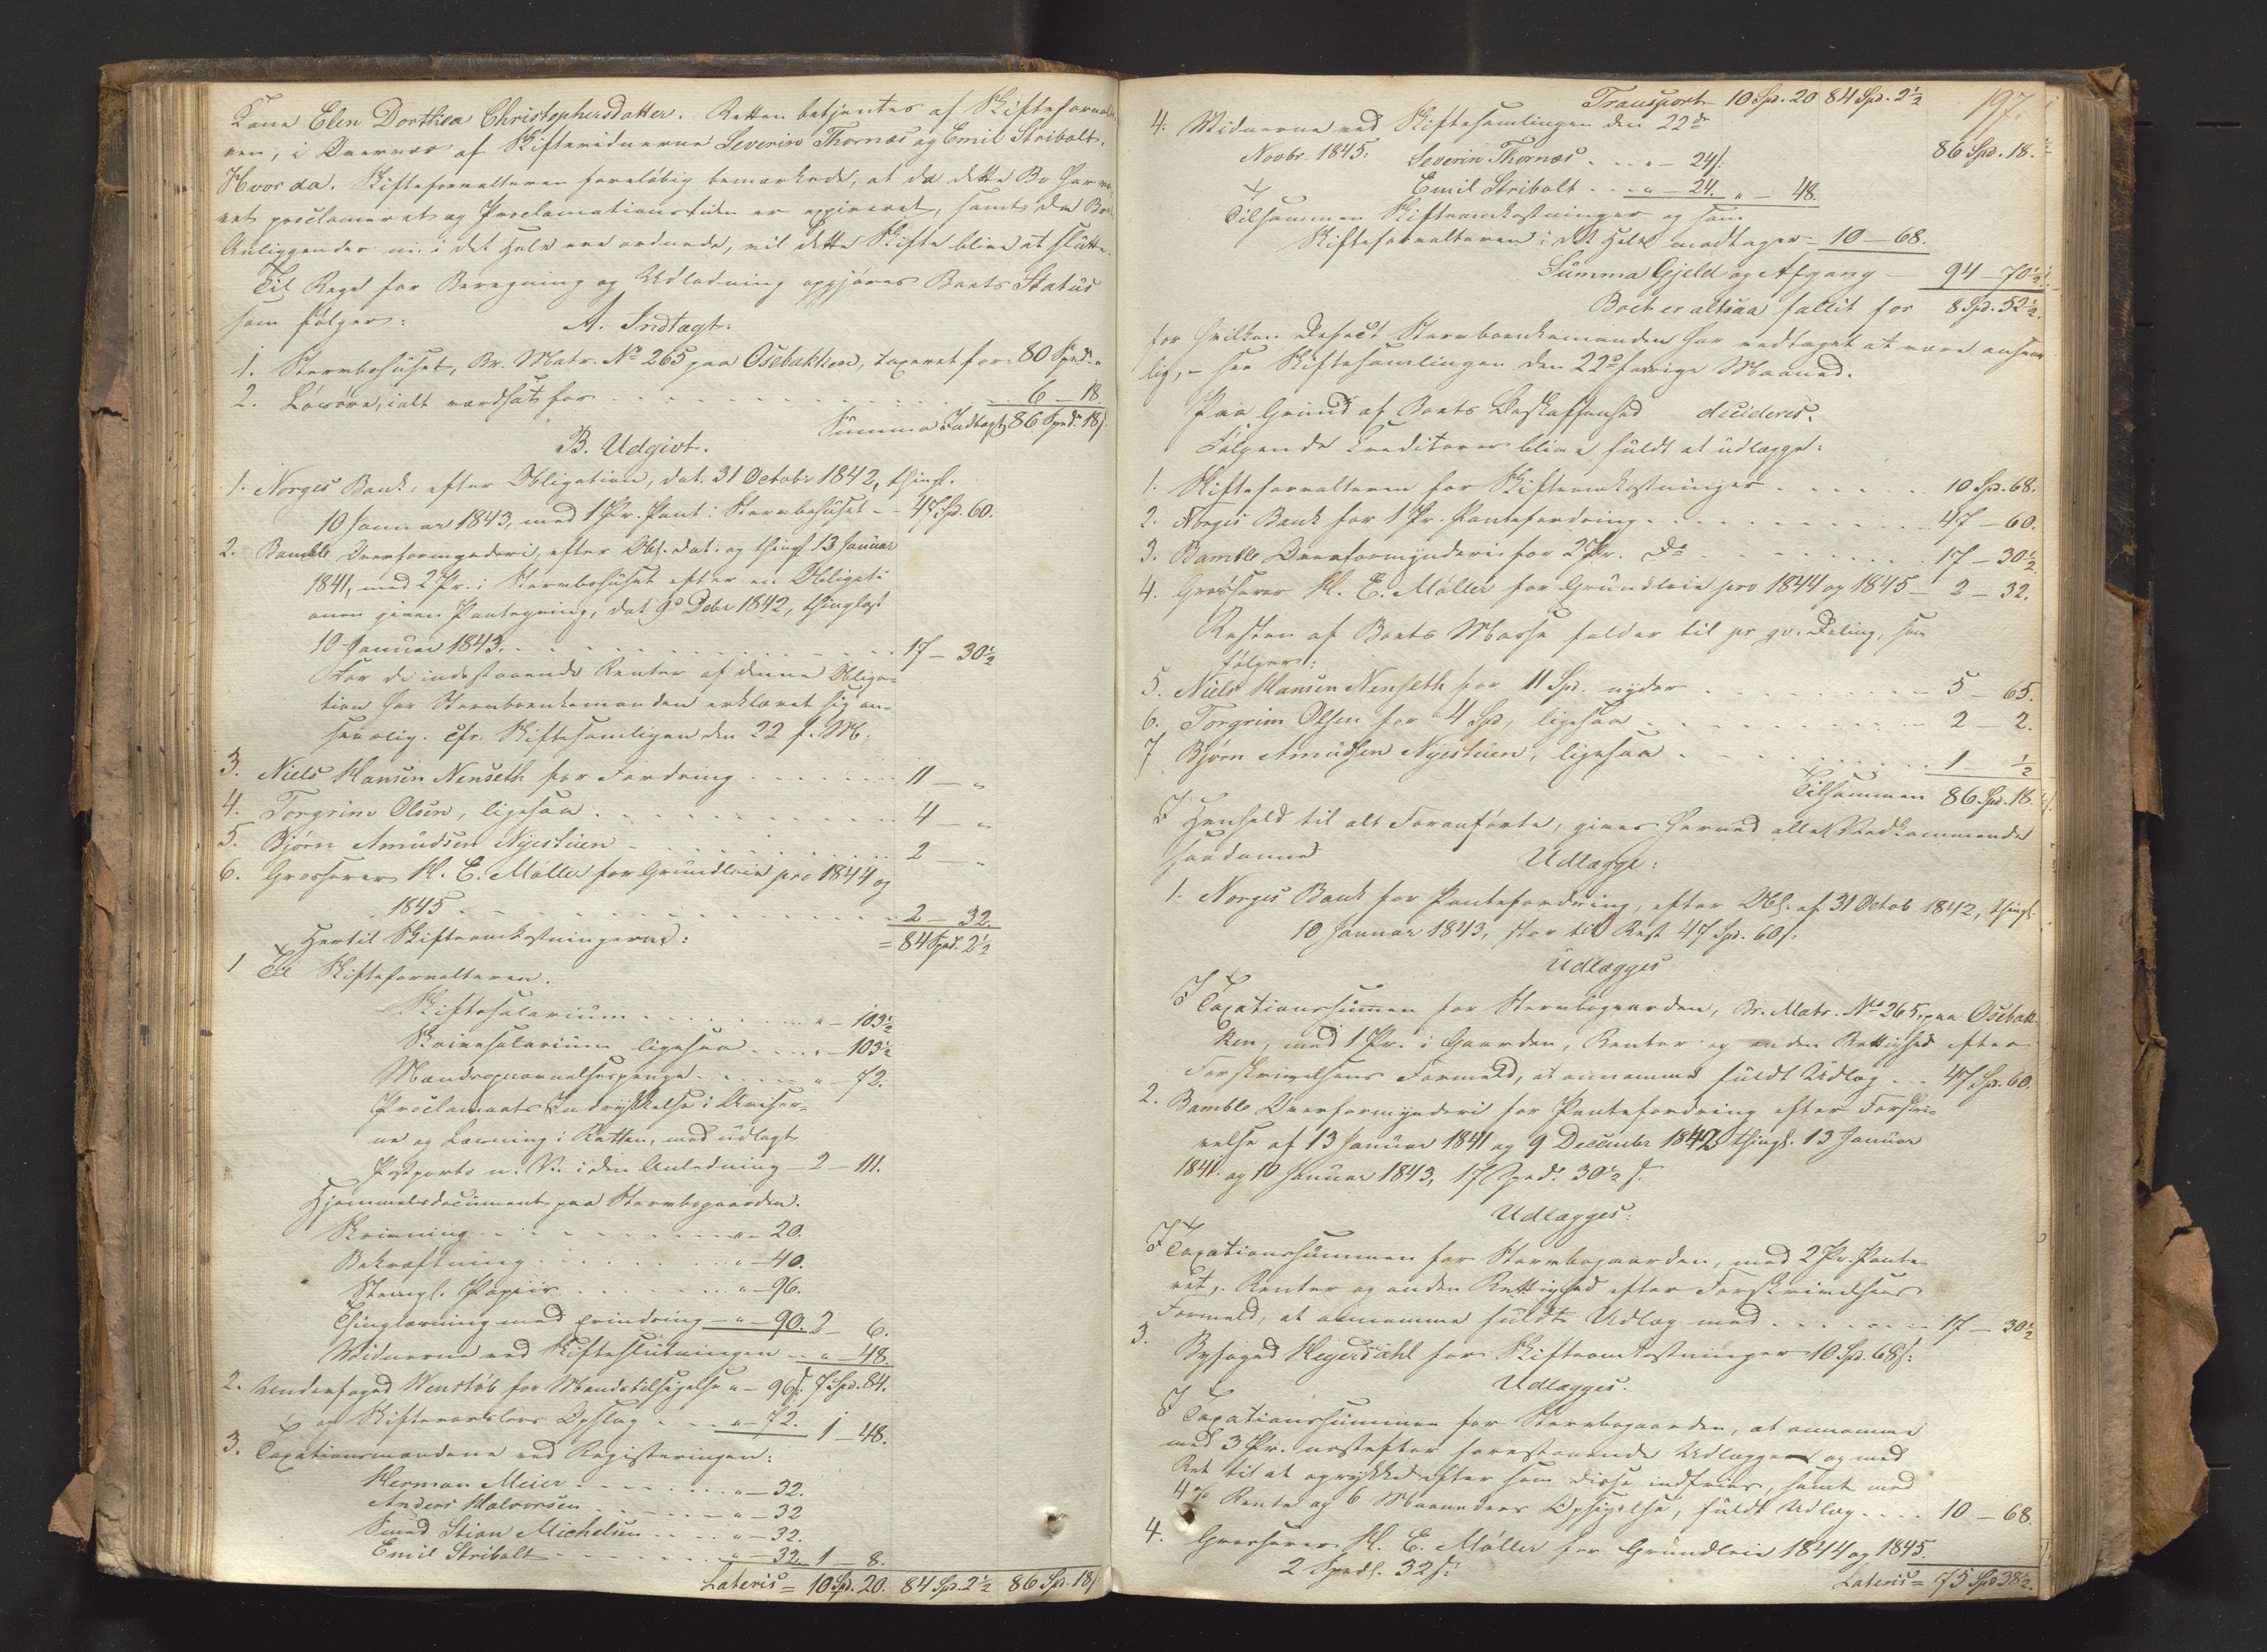 Kone Elen Dorthea Christophersdatter. Retten betjentes af Skifteforvalte
ren, i Overvær af Skiftevidnerne Severin Thornæs og Emil Stribolt.
Hvor da. Skifteforvalteren foreløbig bemærkede, at da dette Bo har væ
ret proclameret og Proclamationstiden er expireret, samt da Boets
Anliggender nu i det Hele ere ordnede, vil dette Skifte blive at slutte.
Til Regel for Beregning og Udlodning opgjøres Boets Status
som følger:
A. Indtægt:
1. Stervbohuset, Br. Matr. No 265 paa Osebakken, taxeret for 80 Spd. "
2. Løsøre, ialt værdsat for 6 – 18.
Summa Indtægt 86 Spd. 18 s.
B. Udgivt.
1. Norges Bank, efter Obligation, dat. 31 Octobr 1842, thingl.
10 Januar 1843, med 1 Pr. Pant i Stervbohuset – 47 Sp. 60.
2. Bamble Overformynderi, efter Obl. dat. og thingl 13 Januar
1841, med 2 Pr. i Stervbohuset efter en Obligati
onen given Paategning, dat 9d Debr 1842, thinglæst
10 Januar 1843. 17 – 30½
For de indestaaende Renter af denne Obliga=
tion har Stervboenkemanden erklæret sig an=
svarlig. cfr. Skiftesamlingen den 22 f. M.
3. Niels Hansen Nenseth for Fordring 11 – "
4. Torgrim Olsen, ligesaa 4 – "
5. Bjørn Amundsen Nyestuen 2 – "
6. Grosserer H. E. Møller for Grundleie pro 1844 og
1845 2 – 32.
= 84 Spd. 2½
Hertil Skifteomkostningerne:
1 Til Skifteforvalteren.
Skiftesalarium " – 103½
Skrivesalarium ligesaa " – 103½
Mændsopnævnelsespenge " – 72.
Proclamaets Indrykkelse i Aviser=
ne og Læsning i Retten, med udlagt
Postporto m. V. i den Anledning – 2 – 111.
Hjemmelsdocument paa Stervbogaarden.
Skrivning " – 20.
Bekræftning " – 40.
Stempl. Papiir " – 96.
Thinglæsning med Erindring – " – 90. 2 – 6.
Vidnerne ved Skifteslutningen " – 48.
7 Spd. 84.
2. Underfoged Wenstøb for Mændstilsigelse " – 96 s.
og Skiftevarslers Opslag " – 72. 1 – 48.
3. Taxationsmændene ved Registeringen:
Herman Meier " – 32.
Anders Halvorsen " – 32
Smed Stian Michelsen " – 32.
Emil Stribolt " – 32. 1 – 8.
Lateris = 10 Sp. 20. 84 Sp. 2½ 86 Sp. 18 s
197.
Transport 10 Sp. 20 84 Spd. 2½
86 Spd. 18.
4. Vidnerne ved Skiftesamlingen den 22de
Novbr 1845: Severin Thornæs " – 24 s.
Emil Stribolt " – 24. " – 48.
Tilsammen Skifteomkostninger og som
Skifteforvalteren i det Hele modtager – 10 – 68.
Summa Gjeld og Afgang – 94 – 70½
Boet er altsaa fallit for 8 Spd. 52½.
for hvilken Defect Stervboenkemanden har vedtaget at være ansvar
lig, – see Skiftesamlingen den 22d forrige Maaned.
Paa Grund af Boets Beskaffenhed decideres.
Følgende Creditorer blive fuldt at udlægge:
1. Skifteforvalteren for Skifteomkostninger 10 Sp. 68.
2. Norges Bank for 1 Pr. Pantefordring 47 – 60.
3. Bamble Overformynderi for 2 Pr. Do 17 – 30½.
4. Grosserer H. E. Møller for Grundleie pro 1844 og 1845 – 2 – 32.
Resten af Boets Masse falder til pr qv. Deling, som
følger:
5. Niels Hansen Nenseth for 11 Sp. nyder 5 – 65.
6. Torgrim Olsen for 4 Sp, ligesaa 2 – 2.
7 Bjørn Amundsen Nyestuen, ligesaa 1 ½
Tilsammen 86 Sp. 18.
I Henhold til alt Foranførte, gives herved alle Vedkommende
saadanne
Udlægge:
1. Norges Bank for Pantefordring, efter Obl. af 31 Octob 1842, thingl.
10 Januar 1843, stor til Rest 47 Sp. 60 s.
Udlægges
I Taxationssummen for Stervbogaarden, Br. Matr. No 265 paa Osebak
ken, med 1 Pr. i Gaarden, Renter og anden Rettighed efter
Forskrivelsens Formeld, at annamme fuldt Udlæg 47 Sp. 60.
2. Bamble Overformynderi for Pantefordring efter Forskri=
velse af 13 Januar 1841 og 9 December 1842 thingl. 13 Januar
1841. og 10 Januar 1843, 17 Spd. 30½ s.
Udlægges:
I Taxationssummen for Stervbogaarden, med 2 Pr. Pante
ret, Renter og anden Rettighed efter Forskrivelsens
Formeld, at annamme fuldt Udlæg med 17 – 30½
3. Byfoged Heyerdahl for Skifteomkostninger 10 Sp. 68 s:
Udlægges.
I Taxationssummen for Stervbogaarden, at annamme
med 3 Pr. næstefter forestaaende Udlægger og med
Ret til at oprykke efter som disse indfries, samt med
4 % Rente og 6 Maaneders Opsigelse, fuldt Udlæg 10 – 68.
4. Grosserer H. E. Møller for Grundleie 1844 og 1845.
2 Spdl. 32 s:
Lateris = 75 Sp 38½.